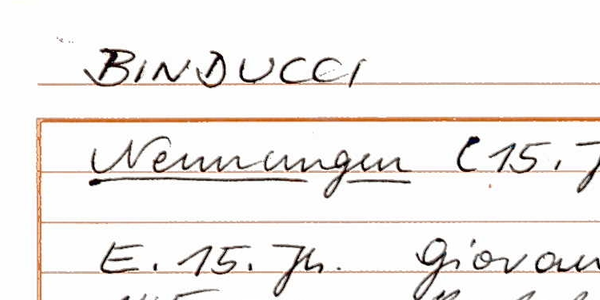 BINDUCCI
Nennungen (15. J
E. 15. Jh. Giovan